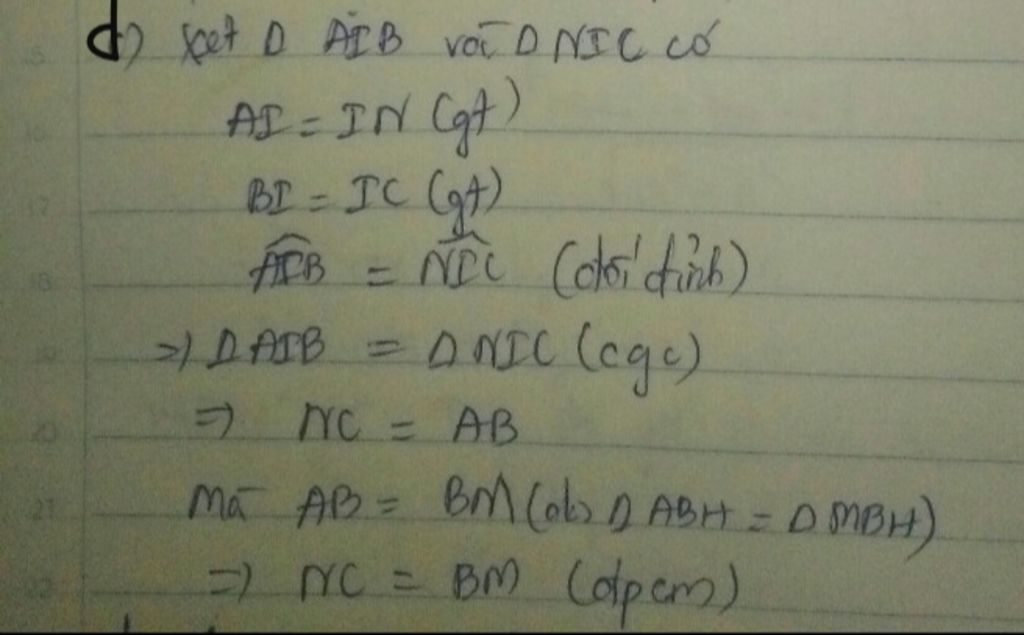 d) xét Δ AIB với Δ NIC có
AI = IN (gt)
BI = IC (gt)
AIB = NIC (đối đỉnh)
=> Δ AIB = Δ NIC (cgc)
=> NC = AB
Mà AB = BM (do Δ ABH = Δ MBH)
=> NC = BM (đpcm)